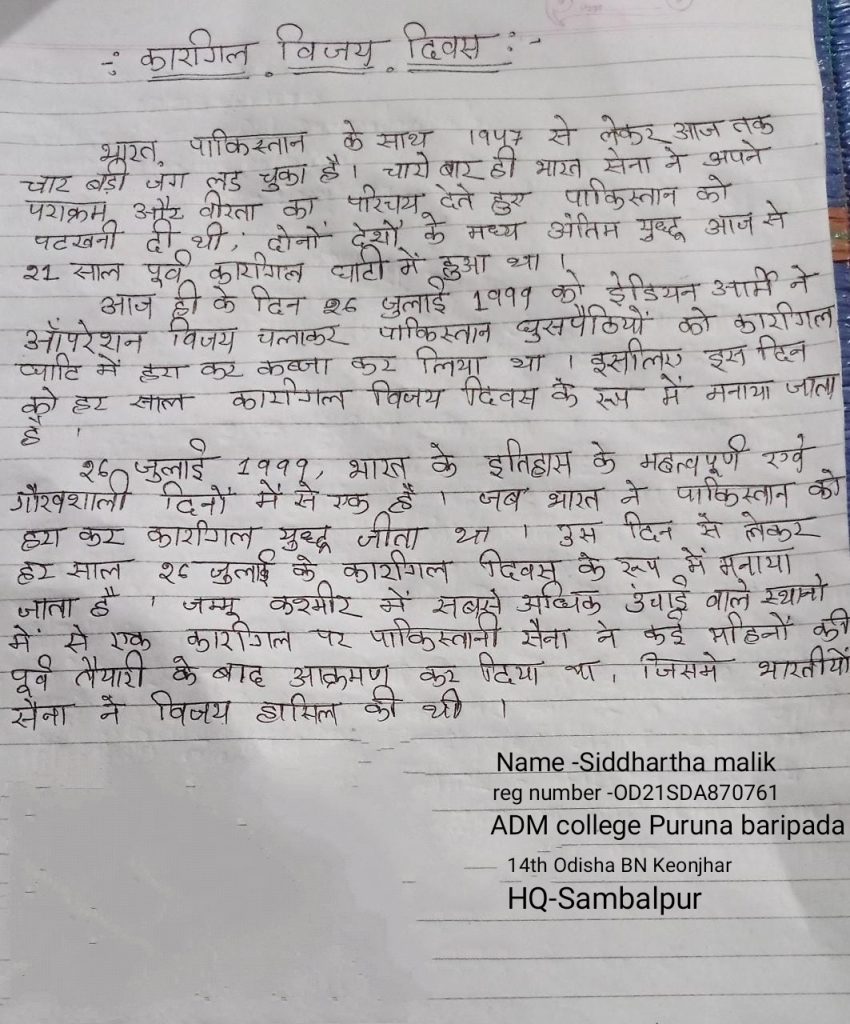 -: कारगिल विजय दिवस :-
भारत, पाकिस्तान के साथ 1947 से लेकर आज तक
चार बड़ी जंग लड चुका है। चारो बार ही भारत सेना ने अपने
पराक्रम और वीरता का परिचय देते हुए पाकिस्तान को
पटखनी दी थी, दोनों देशों के मध्य अंतिम युद्ध आज से
21 साल पूर्व कारगिल घाटी में हुआ था।
आज ही के दिन २६ जुलाई 1999 को इंडियन आर्मी ने
ऑपरेशन विजय चलाकर पाकिस्तान घुसपैठियों को कारगिल
घाटि में हरा कर कब्जा कर लिया था। इसीलिए इस दिन
को हर साल कारगिल विजय दिवस के रूप में मनाया जाता
है।
२६ जुलाई 1999, भारत के इतिहास के महत्वपूर्ण एवं
गौरवशाली दिनों में से एक है। जब भारत ने पाकिस्तान को
हरा कर कारगिल युद्ध जीता था। उस दिन से लेकर
हर साल २६ जुलाई के कारगिल दिवस के रूप में मनाया
जाता है। जम्मू कश्मीर में सबसे अधिक उंचाई वाले स्थानो
में से एक कारगिल पर पाकिस्तानी सेना ने कई महिनों की
पूर्व तैयारी के बाद आक्रमण कर दिया था, जिसमे भारतीयों
सेना ने विजय हासिल की थी।
Name -Siddhartha malik
reg number -OD21SDA870761
ADM college Puruna baripada
14th Odisha BN Keonjhar
HQ-Sambalpur